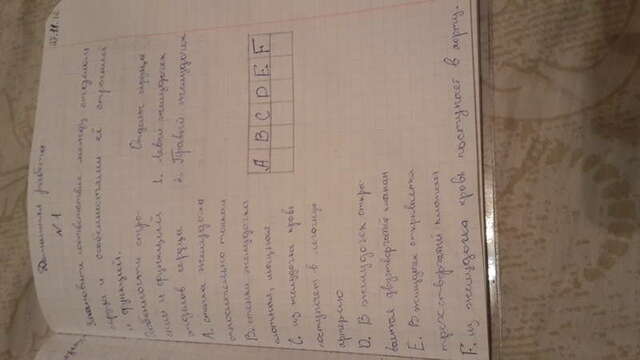 Домашняя работа
№1
11.
Установите соответствие между отделом
сердца и особенностями её строений
и функций.
Особенности стро-
ений и функций
отделов сердца
Отделы сердца
1. Левый желудочек
2. Правый желудочек
A. стенка желудочка
относительно тонкая
B. стенка желудочка
плотная, мощная
C. из желудочка кровь
поступает в легочную
артерию
A B C D E F
D. В желудочек откры-
вается двухстворчатый клапан
E. В желудочек открывается
трехстворчатый клапан
F. из желудочка кровь поступает в аорту.